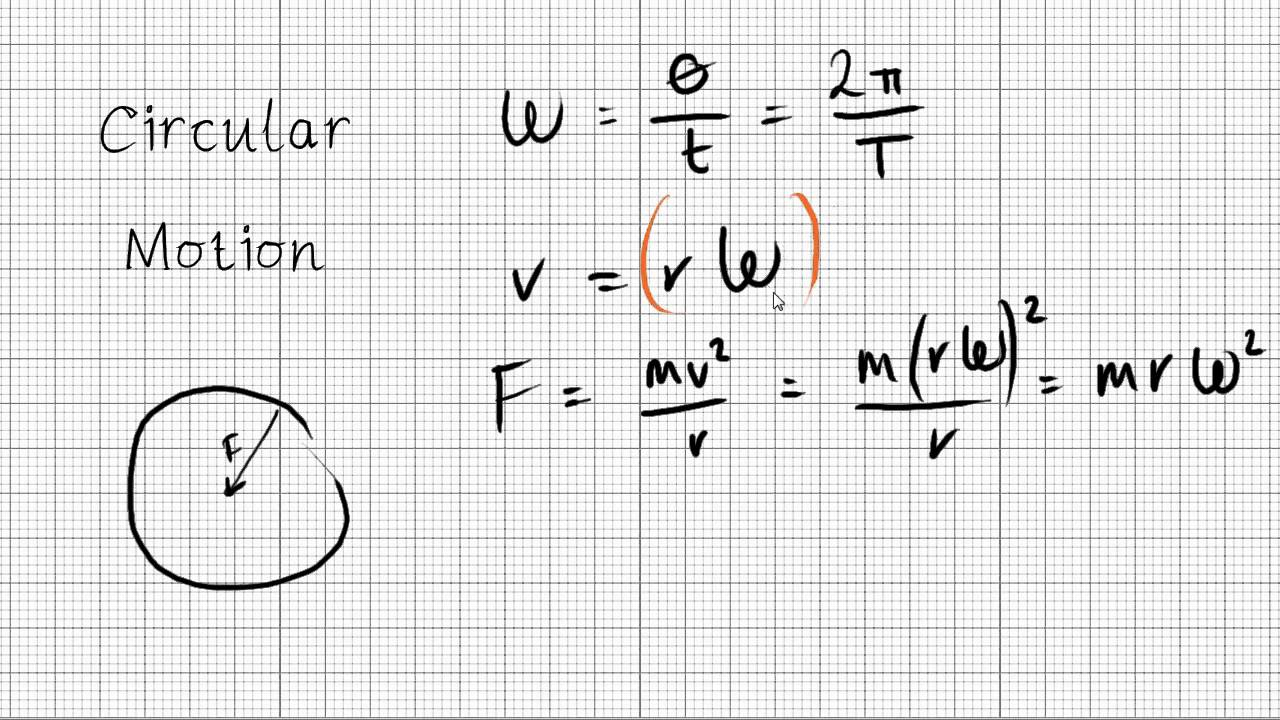 Circular
Motion
ω = θ/t = 2π/T
v = (rω)
F = mv²/r = m(rω)²/r = mrω²
F